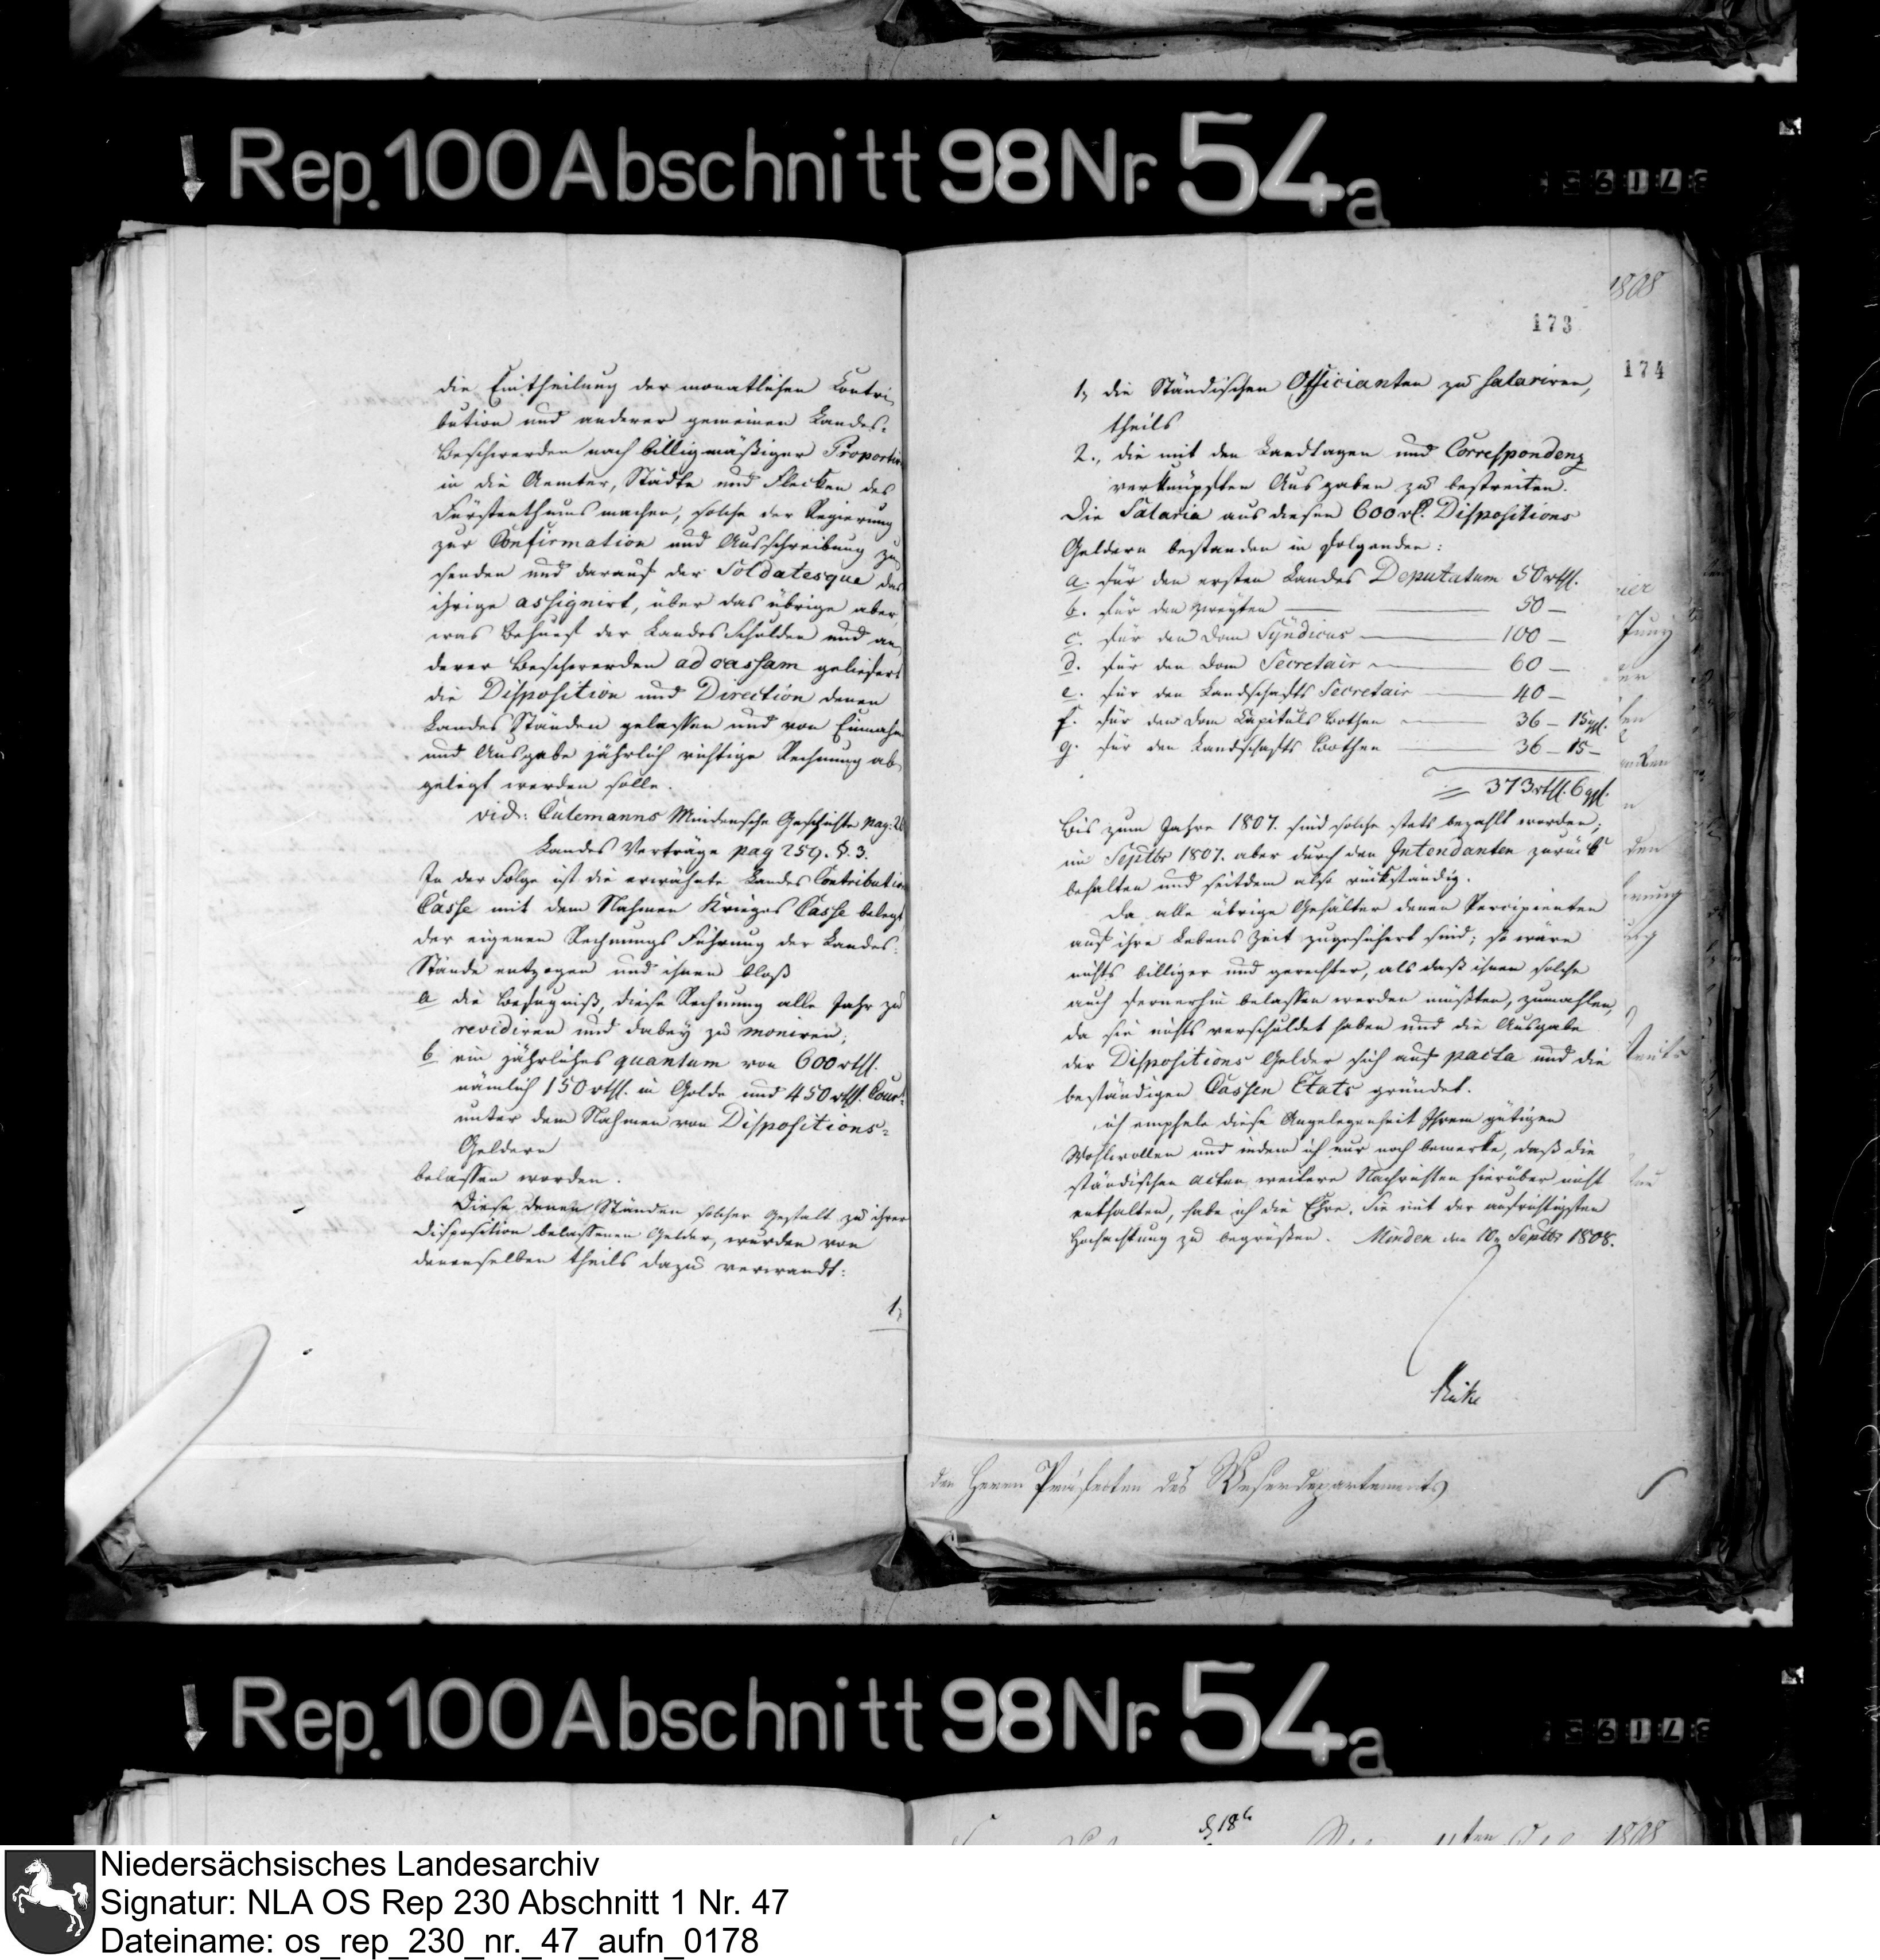 Rep. 100 Abschnitt 98 Nr. 54a
die Eintheilung der monatlichen Contri,
bution und anderer gemeinen Landes-
Beschwerden nach billigmäßiger Proportion
in die Aemter, Städte und Flecken des
Fürstenthums machen, solche der Regierung
zur Confirmation und Ausschreibung zu
senden und darauf der Soldatesque das
ihrige assignirt, über das übrige aber,
was Behuef der Landes Schulden und an,
derer Beschwerden ad cassam geliefert
die Disposition und Direction denen
Landes Ständen gelassen und von Einnahme
und Ausgabe jährlich richtige Rechnung ab,
gelegt werden solle.
vid: Culemanns Mindensche Geschichte pag: 26
Landes Verträge pag 259. §. 3.
In der Folge ist die erwähnte Landes Contribution
Casse mit dem Nahmen Krieges Casse belegt,
der eigenen Rechnungs Führung der Landes-
Stände entzogen und ihnen bloß
a die Befugniß, diese Rechnung alle Jahr zu
revidiren und dabey zu moniren;
b. ein jährliches quantum von 600 rthl.
nämlich 150 rthl. in Golde und 450 rthl. Cour:
unter dem Nahmen von Dispositions-
Geldern
belassen worden.
Diese denen Ständen solcher Gestalt zu ihrer
Disposition belassenen Gelder, wurden von
denenselben theils dazu verwandt:
1,
1808
173
174
1, die Ständischen Officianten zu salariren,
theils
2., die mit den Landtagen und Correspondenz
verknüpften Ausgaben zu bestreiten.
Die Salaria aus diesen 600 rl. Dispositions
Geldern bestanden in folgenden:
a. für den ersten Landes Deputatum 50 rthl.
b. für den zweyten — 50 —
c. für den Dom Syndicus — 100 —
d. für den Dom Secretair — 60 —
e. für den Landschafts Secretair — 40 —
f. für den Dom Capituls Bothen — 36 — 15 ggl.
g. für den Landschafts Bothen — 36 — 15 —
= 373 rthl. 6 ggl.
Bis zum Jahre 1807. sind solche stets bezahlt worden;
im Septbr 1807. aber durch den Intendanten zurück
behalten und seitdem also rückständig.
Da alle übrige Gehälter denen Percipienten
auf ihre Lebens Zeit zugesichert sind; so wäre
nichts billiger und gerechter, als daß ihnen solche
auch fernerhin belassen werden müßten, zumahlen,
da sie nichts verschuldet haben und die Ausgabe
der Dispositions Gelder sich auf pacta und die
beständigen Cassen Etats gründet.
ich empfele diese Angelegenheit Ihrem gütigen
Wohlwollen und indem ich nur noch bemerke, daß die
ständischen Acten weitere Nachrichten hierüber nicht
enthalten, habe ich die Ehre, Sie mit der aufrichtigsten
Hochachtung zu begrüßen. Minden den 10. Septbr 1808.
den Herrn Präfecten des Weserdepartements
Rep. 100 Abschnitt 98 Nr. 54a
1808
Niedersächsisches Landesarchiv
Signatur: NLA OS Rep 230 Abschnitt 1 Nr. 47
Dateiname: os_rep_230_nr._47_aufn_0178